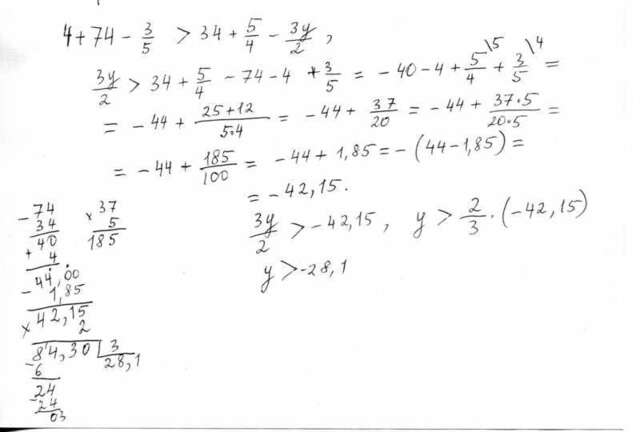 4+74-3/5 > 34+5/4-3y/2,
3y/2 > 34+5/4-74-4+3/5 = -40-4+5/4\5+3/5\4 =
= -44+(25+12)/(5·4) = -44+37/20 = -44+(37·5)/(20·5) =
= -44+185/100 = -44+1,85 = -(44-1,85) =
= -42,15.
3y/2 > -42,15, y > 2/3·(-42,15)
y > -28,1
-74
34
40
+
4
-44,00
1,85
×42,15
2
84,30 | 3
28,1
-6
24
-24
03
×37
5
185